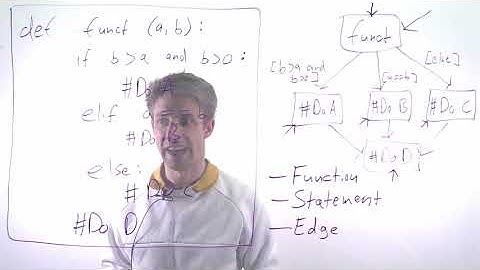 def funct (a,b):
if b>a and b>0:
#Do A
elif a
#Do
else:
# Do C
#Do D
funct
[b>a and
b>0]
[else]
#Do A
#Do B
#Do C
#Do D
—Function
—Statement
—Edge